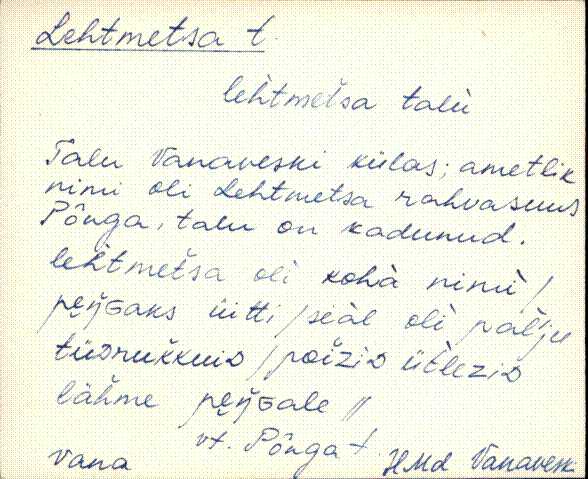 Lehtmetsa t.
lèhtmeťsa talù
Talu Vanaveski külas; ametlik
nimi oli Lehtmetsa rahvasuus
Põnga, talu on kadunud.
lèhtmeťsa olì kohà nimì /
pe̮ŋGaks üìtti / seàl olì paĺju
tüᴅrukkuiᴅ / poìziᴅ ütleziᴅ
lähme pe̮ŋGale //
vt. Põnga t.
vana HMd Vanavesk.